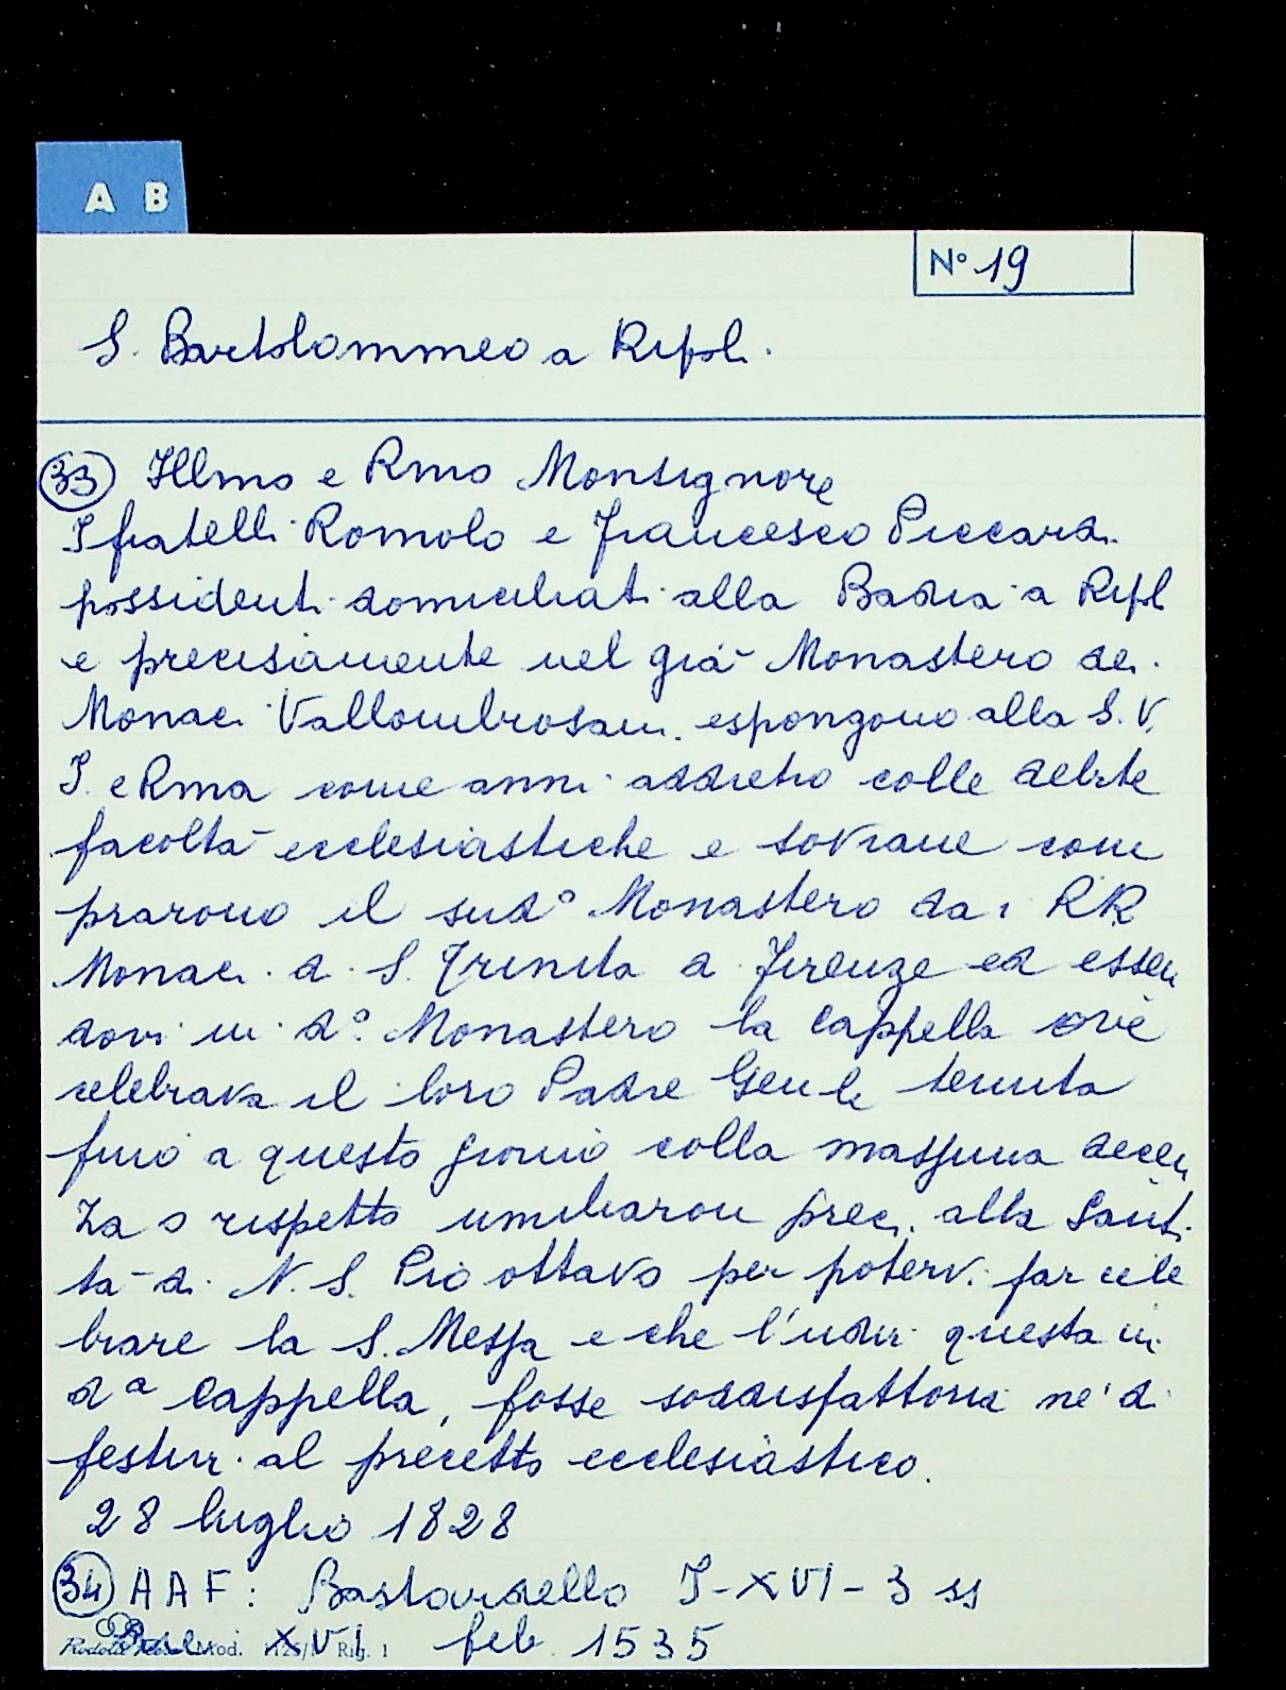 A B
N° 19
S. Bartolommeo a Ripoli.
33 Illmo e Rmo Monsignore
I fratelli Romolo e Francesco Piccardi
possidenti domiciliati alla Badia a Ripoli
e precisamente nel già Monastero dei
Monaci Vallombrosani espongono alla S. V.
I. e Rma come anni addietro colle debite
facoltà ecclesiastiche e sovrane com
prarono il sud° Monastero dai RR
Monaci di S. Trinita di Firenze ed essen
dovi in d°. Monastero la Cappella ove
celebrava il loro Padre Genle tenuta
fino a questo giorno colla massima decen
za o rispetto umiliaron preci alla Santi
tà di N. S. Pio ottavo per potervi far cele
brare la S. Messa e che l'udir questa in
da Cappella, fosse soddisfattoria ne' dì
festivi al precetto ecclesiastico.
28 luglio 1828
34 AAF: Bastardello I-XVI-3 ss
XVI feb. 1535
Mod. Rig. 1